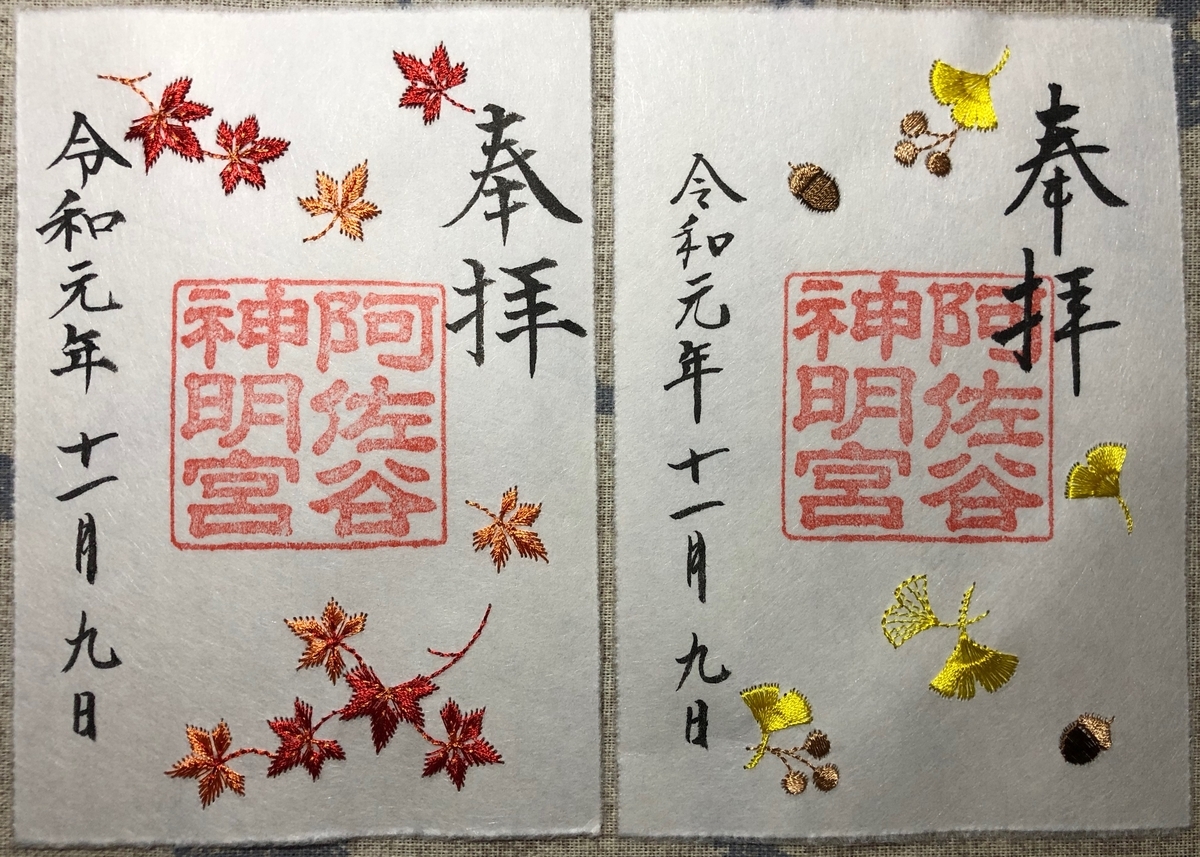 奉拝
阿佐谷
神明宮
令和元年十一月九日
奉拝
阿佐谷
神明宮
令和元年十一月九日